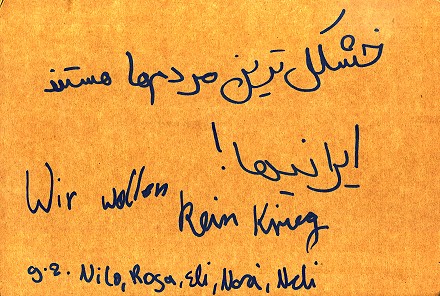 خشکل ترین مردمها هستند
ایرانیها!
Wir wollen
kein Krieg
g.e. Nilo, Rosa, Eli, Nora, Neli